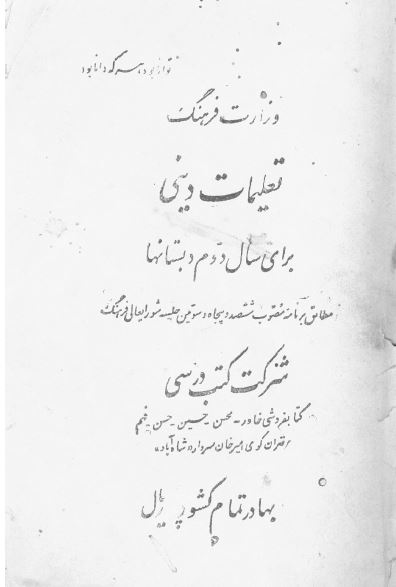 توانا بود هر که دانا بود
وزارت فرهنگ
تعلیمات دینی
برای سال دوم دبستانها
مطابق برنامه مصوب ششصد و پنجاه و سومین جلسه شورایعالی فرهنگ
شرکت کتب درسی
کتابفروشی خاور - محسن - حسین - حسن -
کوی امیرخان سردار «شاه آباد»
بها در تمام کشور ریال